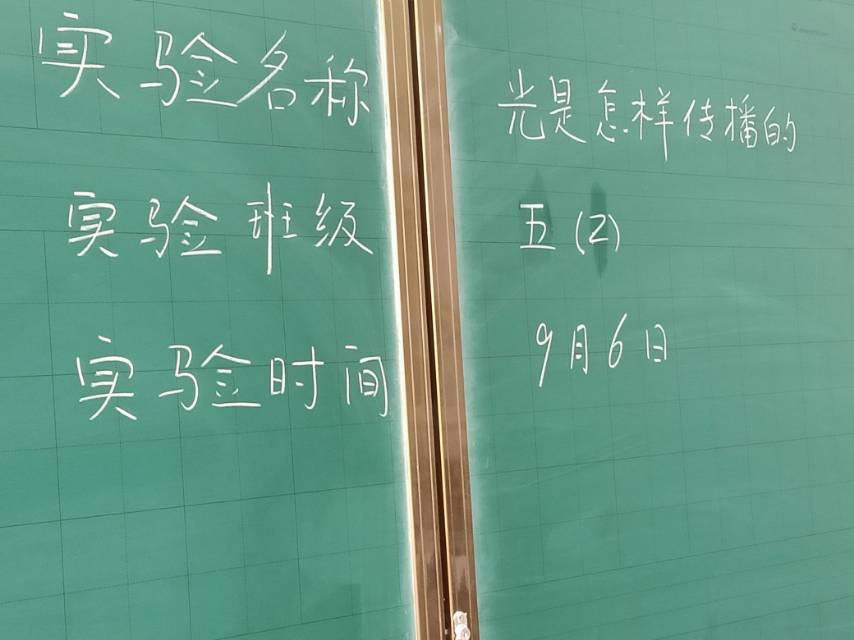 实验名称 光是怎样传播的
实验班级 五(2)
实验时间 9月6日